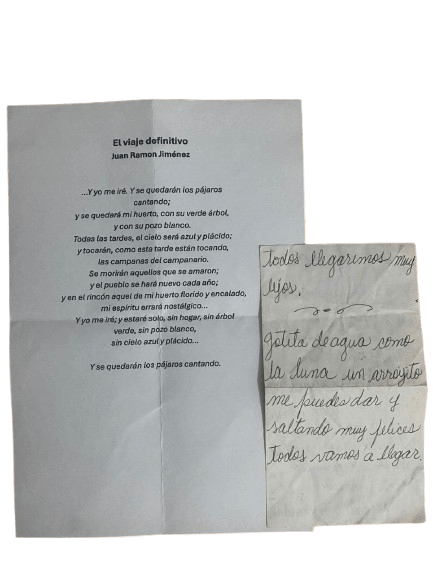 El viaje definitivo
Juan Ramon Jiménez
...Y yo me iré. Y se quedarán los pájaros
cantando;
y se quedará mi huerto, con su verde árbol,
y con su pozo blanco.
Todas las tardes, el cielo será azul y plácido;
y tocarán, como esta tarde están tocando,
las campanas del campanario.
Se morirán aquellos que se amaron;
y el pueblo se hará nuevo cada año;
y en el rincón aquel de mi huerto florido y encalado,
mi espíritu errará nostálgico...
Y yo me iré; y estaré solo, sin hogar, sin árbol
verde, sin pozo blanco,
sin cielo azul y plácido...
Y se quedarán los pájaros cantando.
todos llegarimos muy
lejos.
gotita de agua como
la luna un arroyito
me puedes dar y
saltando muy felices
todos vamos a llegar.